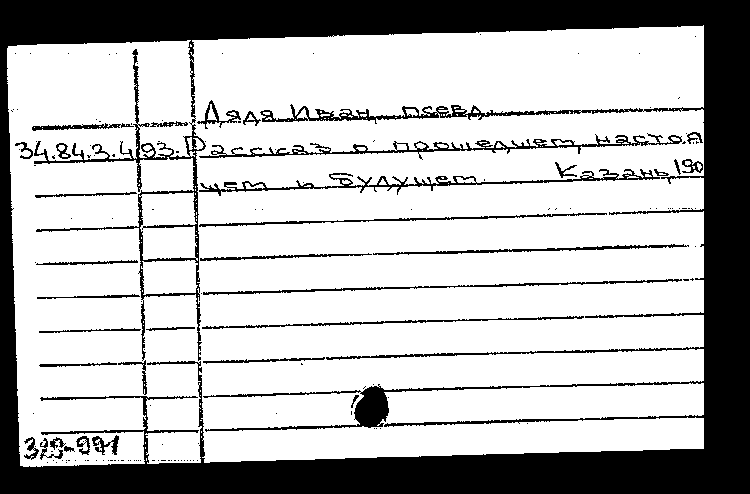 Дядя Иван, псевд.
34.84.3.493. Рассказ о прошедшем, настоя
щем и будущем. Казань, 190